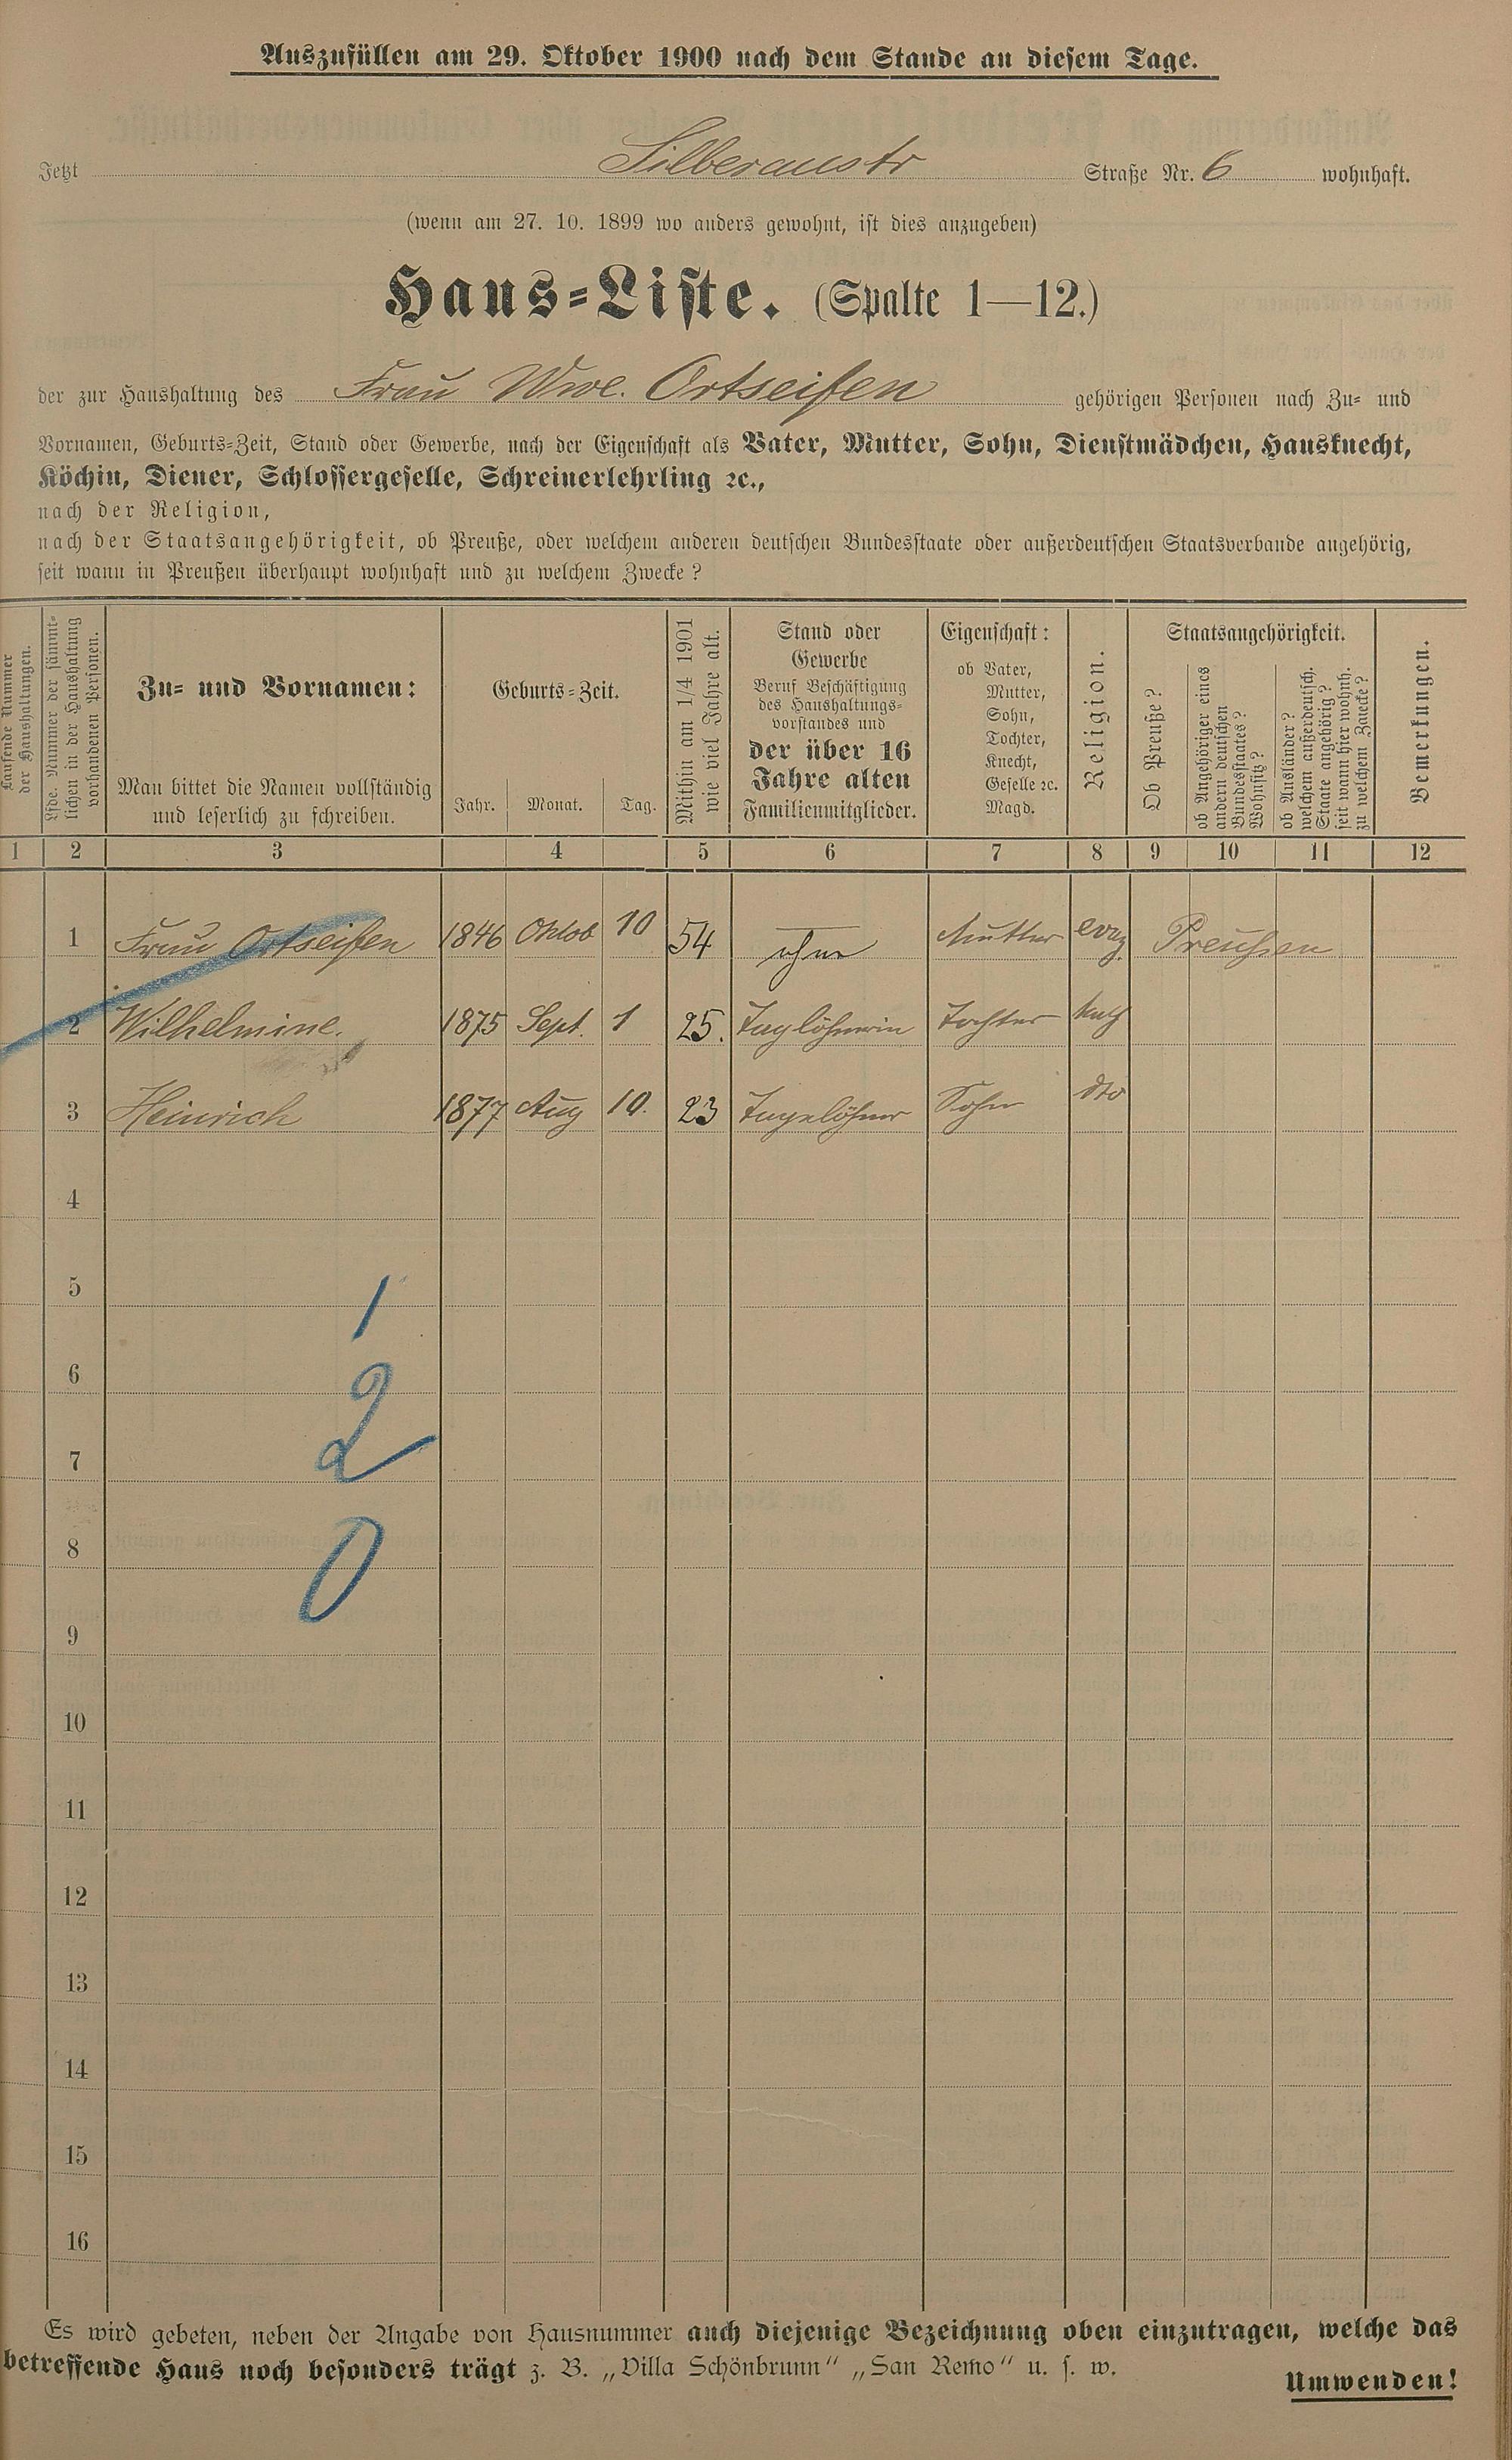 Auszufüllen am 29. Oktober 1900 nach dem Stande an diesem Tage.
Jetzt Silberaustr Straße Nr. 6 wohnhaft.
(wenn am 27. 10. 1899 wo anders gewohnt, ist dies anzugeben)
Haus-Liste. (Spalte 1—12.)
der zur Haushaltung des Frau Wwe. Ortseifen gehörigen Personen nach Zu- und
Vornamen, Geburts-Zeit, Stand oder Gewerbe, nach der Eigenschaft als Vater, Mutter, Sohn, Dienstmädchen, Hausknecht,
Köchin, Diener, Schlossergeselle, Schreinerlehrling ꝛc.,
nach der Religion,
nach der Staatsangehörigkeit, ob Preuße, oder welchem anderen deutschen Bundesstaate oder außerdeutschen Staatsverbande angehörig,
seit wann in Preußen überhaupt wohnhaft und zu welchem Zwecke?
Laufende Nummer
der Haushaltungen.
Lfde. Nummer der sämmt-
lichen in der Haushaltung
vorhandenen Personen.
Zu- und Vornamen:
Man bittet die Namen vollständig
und leserlich zu schreiben.
Geburts-Zeit.
Jahr. Monat. Tag.
Mithin am 1/4 1901
wie viel Jahre alt.
Stand oder
Gewerbe
Beruf Beschäftigung
des Haushaltungs-
vorstandes und
der über 16
Jahre alten
Familienmitglieder.
Eigenschaft:
ob Vater,
Mutter,
Sohn,
Tochter,
Knecht,
Geselle ꝛc.
Magd.
Religion.
Staatsangehörigkeit.
Ob Preuße?
ob Angehöriger eines
andern deutschen
Bundesstaates?
Wohnsitz?
ob Ausländer?
welchem außerdeutsch.
Staate angehörig?
seit wann hier wohnh.
zu welchem Zwecke?
Bemerkungen.
1 2 3 4 5 6 7 8 9 10 11 12
1 Frau Ortseifen 1846 Oktob 10 54 ohne Mutter evng. Preussen
2 Wilhelmine. 1875 Sept. 1 25. Taglöhnerin Tochter
3 Heinrich 1877 Aug 10. 23 Tagelöhner Sohn dto
4
5
1
6
2
7
8
0
9
10
11
12
13
14
15
16
Es wird gebeten, neben der Angabe von Hausnummer auch diejenige Bezeichnung oben einzutragen, welche das
betreffende Haus noch besonders trägt z. B. „Villa Schönbrunn“ „San Remo“ u. s. w.
Umwenden!